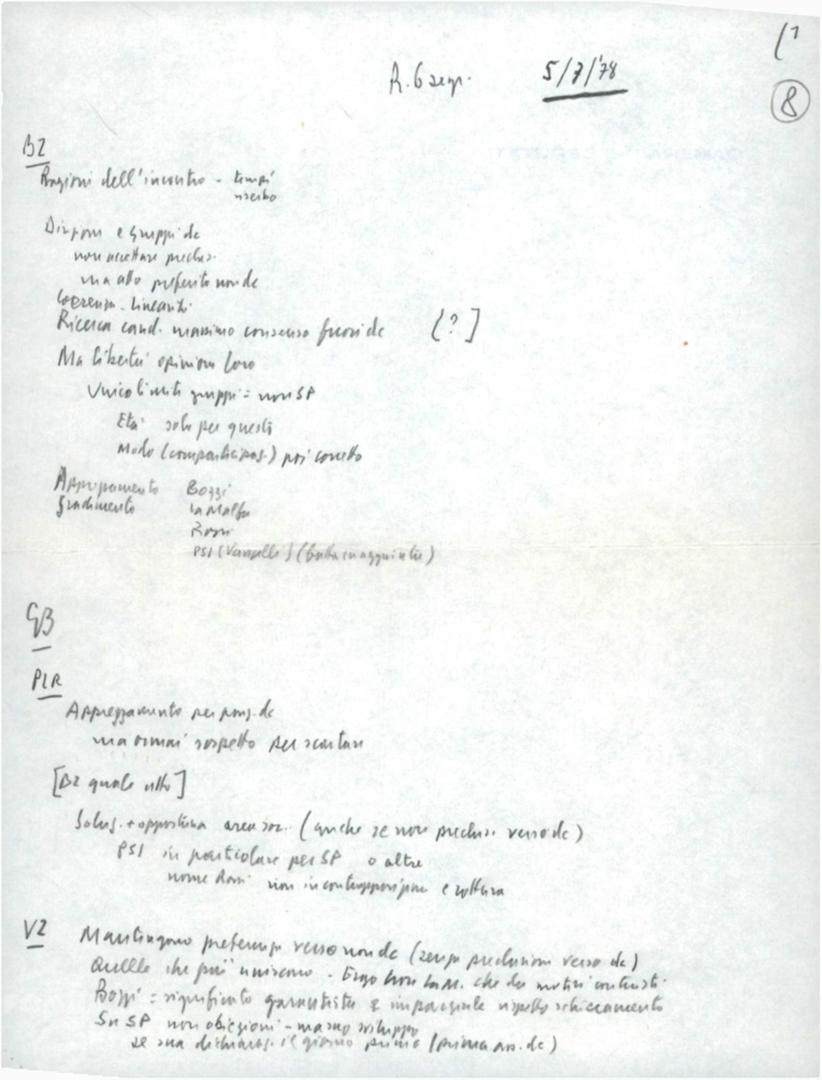 (1
R. 6 segr. 5/7/'78
8
BZ
Ragioni dell'incontro - tempi
Direzioni e gruppi dc
non accettare preclus.
ma altro preferito non dc
Coerenza - linearità
Ricerca cand. massimo consenso fuori dc [?]
Ma libertà opinioni loro
Unico limite gruppi = non SP
Età solo per questo
Modo (compartecipaz.) poi corretto
Apprezzamento Bozzi
gradimento La Malfa
Rossi
PSI (Vassalli)
GB
PLR
Apprezzamento per pos. dc
ma ormai sospetto per scartare
[BZ quale altro]
Soluz. + opportuna area soc. (anche se non preclus. verso dc)
PSI in particolare per SP o altre
non in contrapposizione e rottura
VZ
Mantengono preferenza verso non dc (senza preclusioni verso dc)
Quelle che più uniscono - che da motivi contrasti
Bozzi = significato garantista e imparziale rispetto schieramento
Su SP non obiezioni -
se sua dichiaraz. il giorno prima (prima ass. dc)